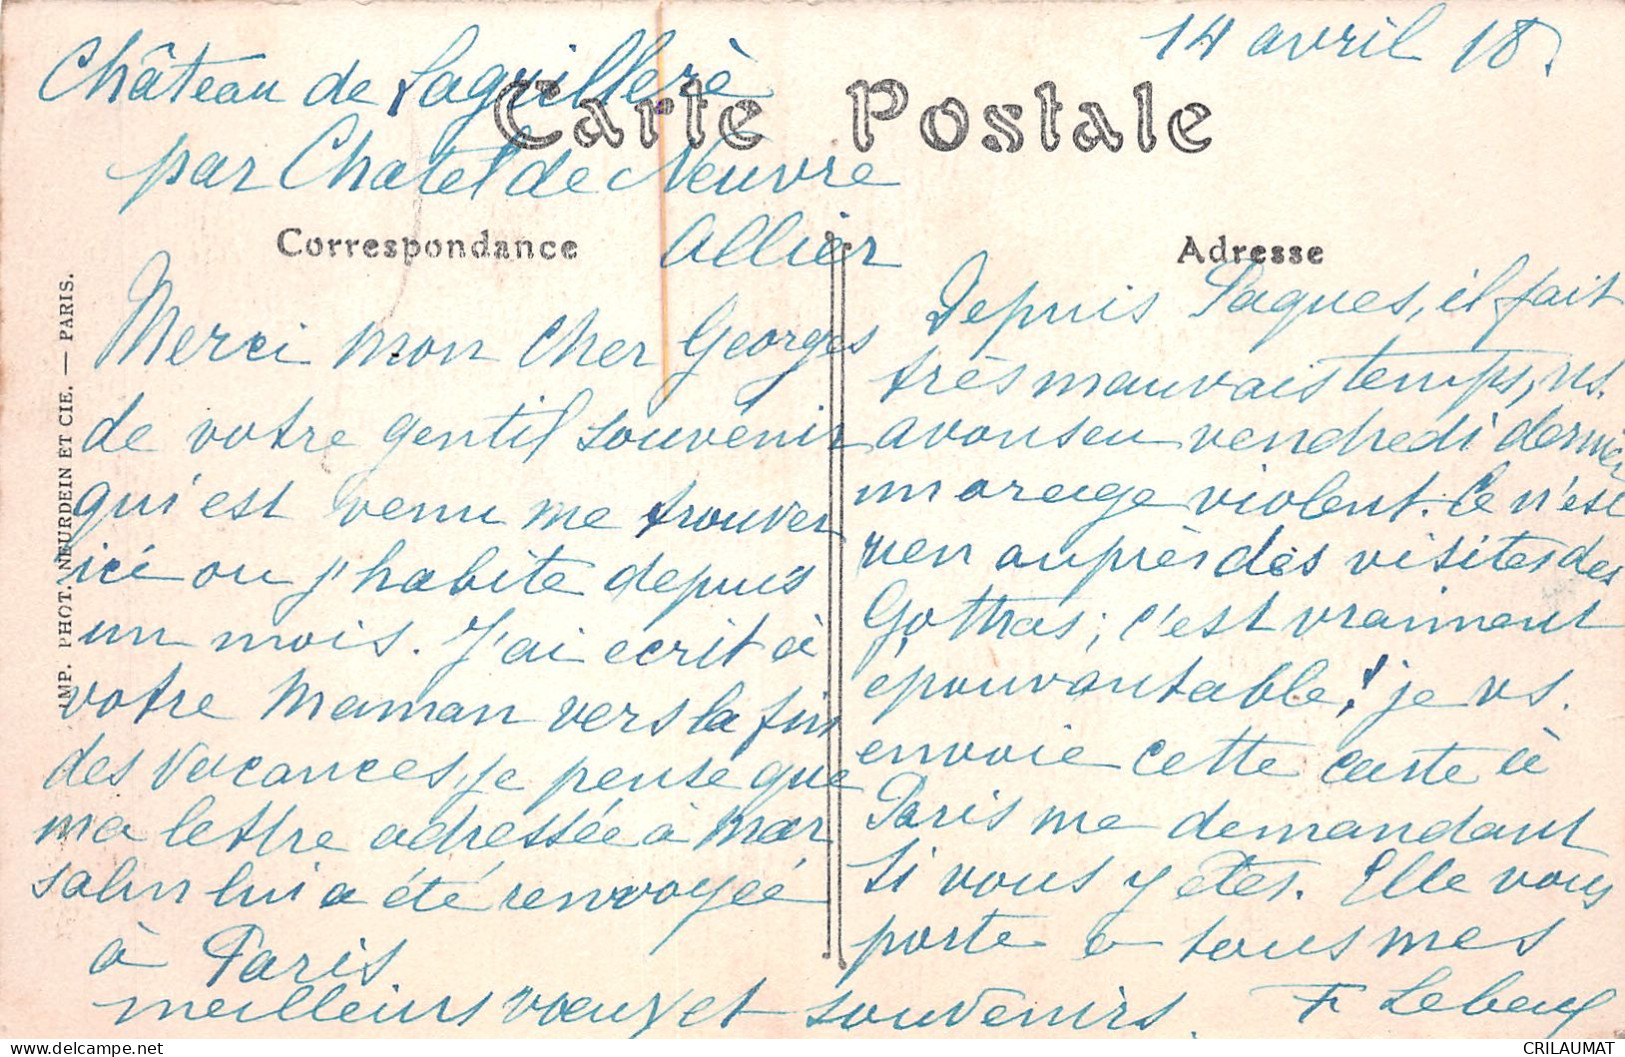 14 avril 18.
Château de Laguillère
Carte Postale
par Chatel de Neuvre
Allier
Correspondance
Merci mon cher Georges
de votre gentil souvenir
qui est venu me trouver
ici ou j'habite depuis
un mois. J'ai ecrit à
votre Maman vers la fin
des vacances, je pense que
ma lettre adressée à Mar
salin lui a été renvoyée
à Paris
Adresse
Depuis Paques, il fait
très mauvais temps, ns.
avons eu vendredi dernier
un orage violent. Ce n'est
rien auprès des visites des
Gothas; c'est vraiment
épouvantable! je vs.
envoie cette carte à
Paris me demandant
si vous y êtes. Elle vous
porte à tous mes
meilleurs vœux et souvenirs.
F Lebeuf
IMP. PHOT. NEURDEIN ET CIE. — PARIS.
delcampe.net
CRILAUMAT